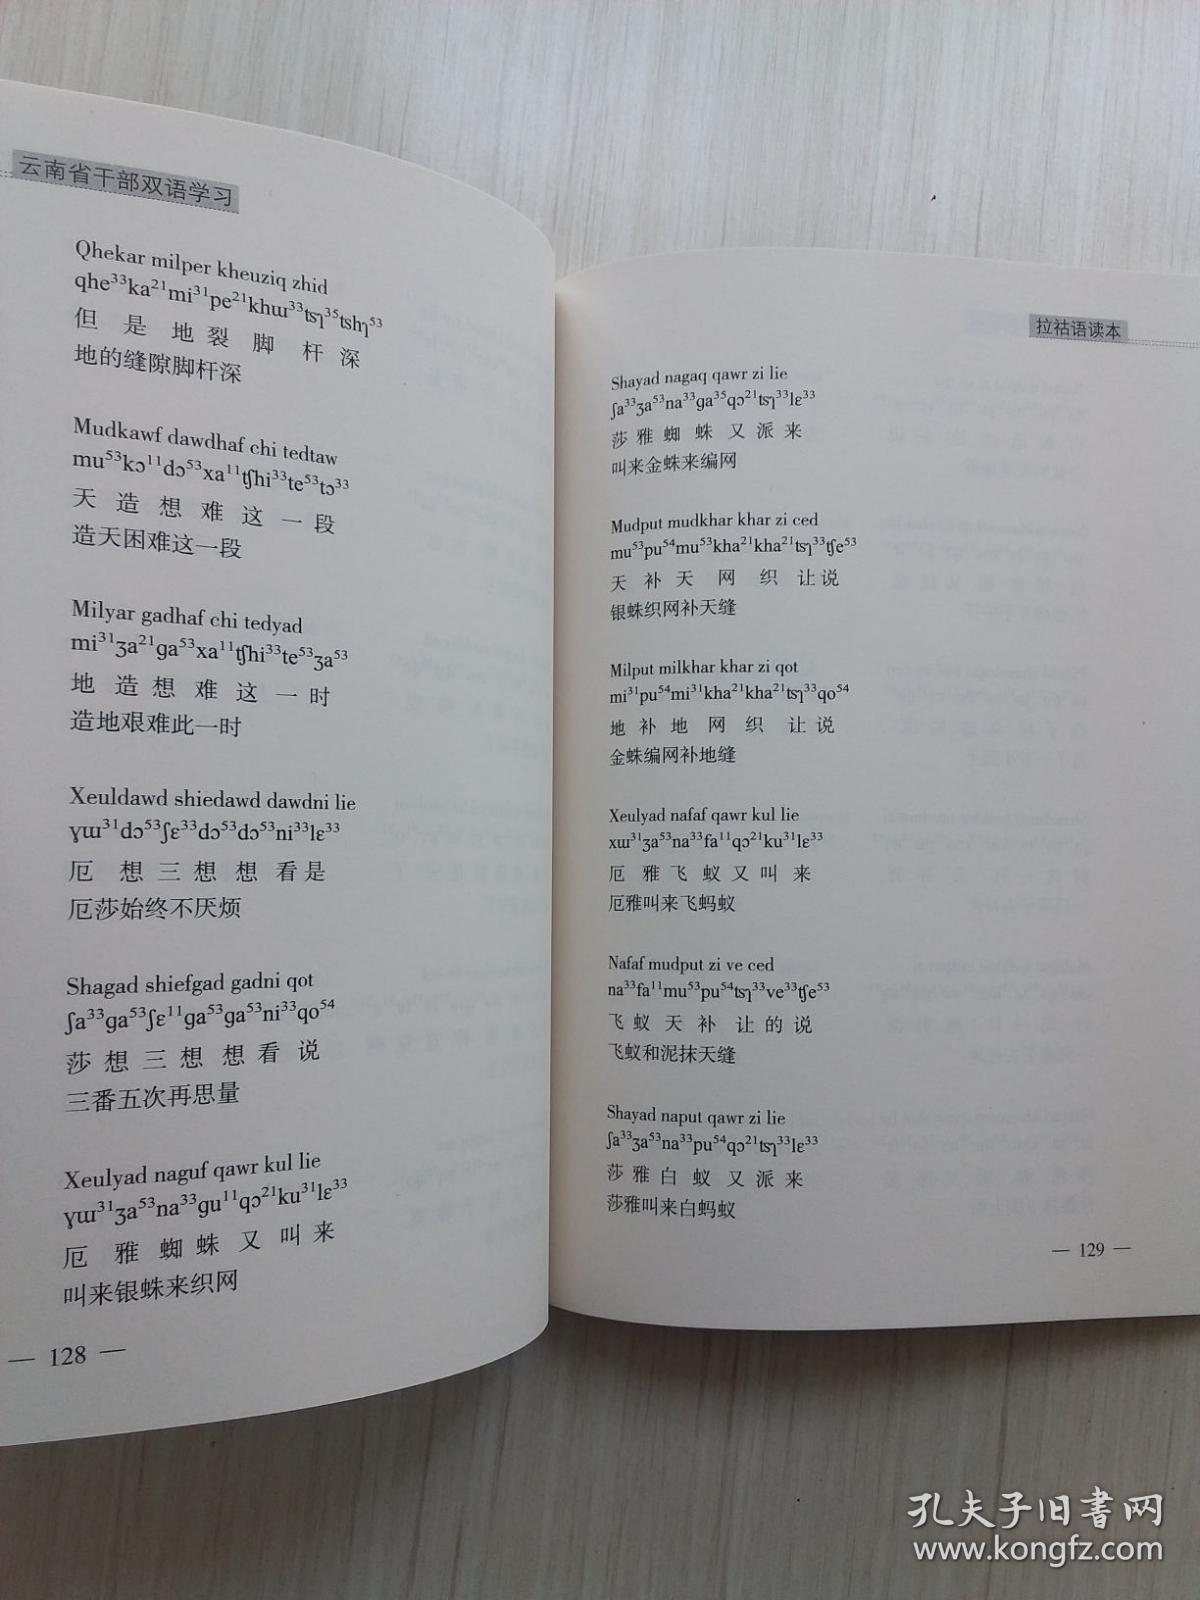 云南省干部双语学习
Qhekar milper kheuziq zhid
qhe³³ka²¹mi³¹pe²¹khɯ³³tsɿ³⁵tshɿ⁵³
但 是 地 裂 脚 杆 深
地的缝隙脚杆深
Mudkawf dawdhaf chi tedtaw
mu⁵³kɔ¹¹dɔ⁵³xa¹¹ʧhi³³te⁵³tɔ³³
天 造 想 难 这 一 段
造天困难这一段
Milyar gadhaf chi tedyad
mi³¹ʒa²¹ga⁵³xa¹¹ʧhi³³te⁵³ʒa⁵³
地 造 想 难 这 一 时
造地艰难此一时
Xeuldawd shiedawd dawdni lie
ɣɯ³¹dɔ⁵³ʃɛ³³dɔ⁵³dɔ⁵³ni³³lɛ³³
厄 想 三 想 想 看 是
厄莎始终不厌烦
Shagad shiefgad gadni qot
ʃa³³ga⁵³ʃɛ¹¹ga⁵³ga⁵³ni³³qo⁵⁴
莎 想 三 想 想 看 说
三番五次再思量
Xeulyad naguf qawr kul lie
ɣɯ³¹ʒa⁵³na³³gu¹¹qɔ²¹ku³¹lɛ³³
厄 雅 蜘 蛛 又 叫 来
叫来银蛛来织网
— 128 —
拉祜语读本
Shayad nagaq qawr zi lie
ʃa³³ʒa⁵³na³³ga³⁵qɔ²¹tsɿ³³lɛ³³
莎 雅 蜘 蛛 又 派 来
叫来金蛛来编网
Mudput mudkhar khar zi ced
mu⁵³pu⁵⁴mu⁵³kha²¹kha²¹tsɿ³³ʧe⁵³
天 补 天 网 织 让 说
银蛛织网补天缝
Milput milkhar khar zi qot
mi³¹pu⁵⁴mi³¹kha²¹kha²¹tsɿ³³qo⁵⁴
地 补 地 网 织 让 说
金蛛编网补地缝
Xeulyad nafaf qawr kul lie
xɯ³¹ʒa⁵³na³³fa¹¹qɔ²¹ku³¹lɛ³³
厄 雅 飞 蚁 又 叫 来
厄雅叫来飞蚂蚁
Nafaf mudput zi ve ced
na³³fa¹¹mu⁵³pu⁵⁴tsɿ³³ve³³ʧe⁵³
飞 蚁 天 补 让 的 说
飞蚁和泥抹天缝
Shayad naput qawr zi lie
ʃa³³ʒa⁵³na³³pu⁵⁴qɔ²¹tsɿ³³lɛ³³
莎 雅 白 蚁 又 派 来
莎雅叫来白蚂蚁
— 129 —
孔夫子旧书网
www.kongfz.com